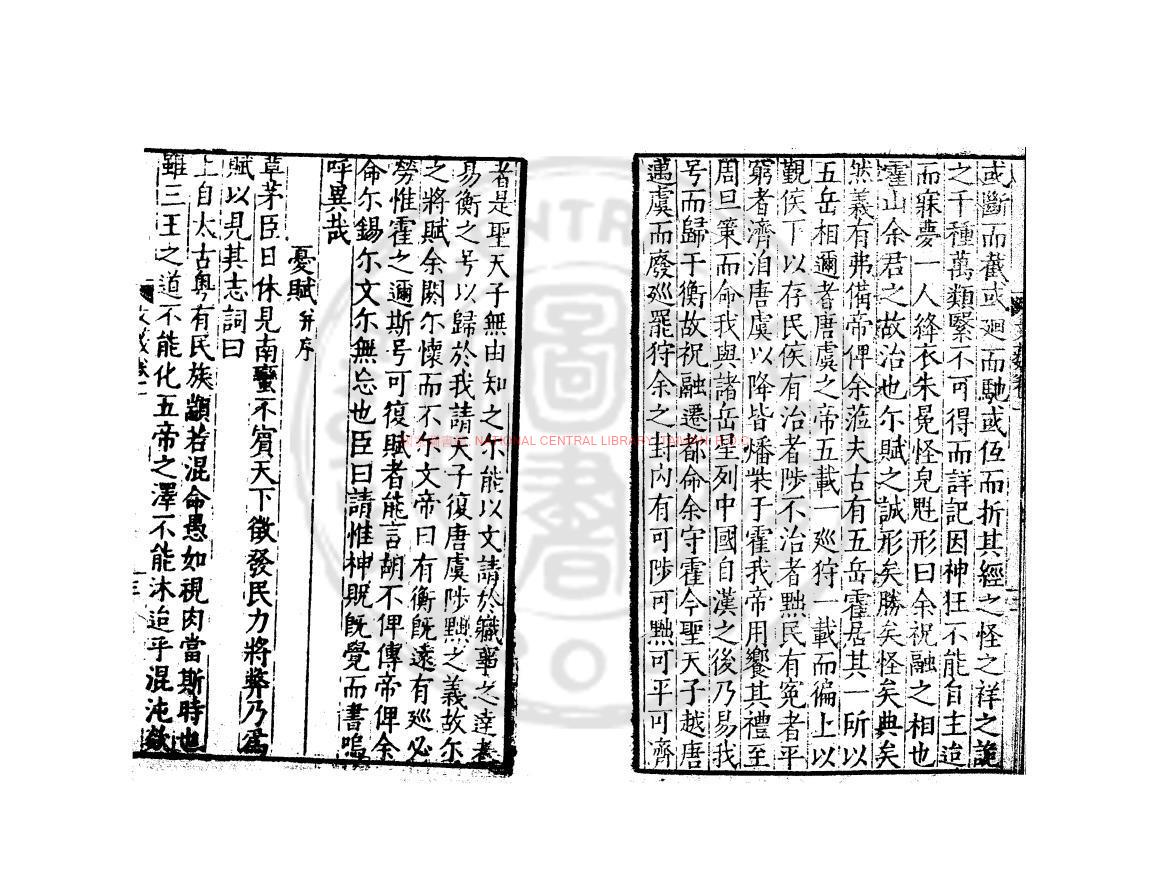 或斷而截或迴而馳或伍而折其經之怪之祥之詭
之千種萬類繄不可得而詳記因神狂不能自主迨
而寐夢一人絳衣朱冕怪皃魁形曰余祝融之相也
霍山余君之故治也尒賦之誠形矣勝矣怪矣典矣
然義有弗備帝俾余蒞夫古有五岳霍居其一所以
五岳相邇者唐虞之帝五載一廵狩一載而徧上以
觀侯下以存民侯有治者陟不治者黜民有寃者平
窮者濟洎唐虞以降皆燔柴于霍我帝用饗其禮至
周旦筞而命我與諸岳星列中國自漢之後乃易我
号而歸于衡故祝融遷都命余守霍今聖天子越唐
邁虞而廢廵罷狩余之封內有可陟可黜可平可濟
者是聖天子無由知之尒能以文請於職事之達者
易衡之号以歸於我請天子復唐虞陟黜之義故尒
之將賦余闕尒懷而不尒文帝曰有衡旣遠有廵必
勞惟霍之邇斯号可復賦者能言胡不俾傳帝俾余
命尒錫尒文尒無忘也臣曰請惟神旣旣覺而書嗚
呼異哉
憂賦并序
草茅臣日休見南蠻不賔天下徵發民力將弊乃爲
賦以見其志詞曰
上自太古粤有民族顓若混命愚如視肉當斯時也
雖三王之道不能化五帝之澤不能沐迨乎混沌欻
NATIONAL CENTRAL LIBRARY, TAIWAN, R.O.C.